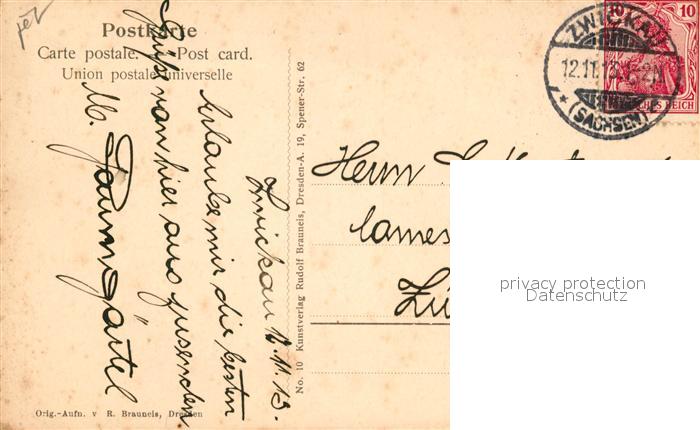 Postkarte
Carte postale. Post card.
Union postale universelle
Zwickau 12.11.13.
Erlaube mir die besten
Grüße von hier aus zusenden
M. Baumgärtel
Orig.-Aufn. v R. Brauneis, Dresden
No. 10 Kunstverlag Rudolf Brauneis, Dresden-A. 19, Spener-Str. 62
10 10
REICH
ZWICKAU
12.11.13
* (SACHSEN) *
Herrn
privacy protection
Datenschutz